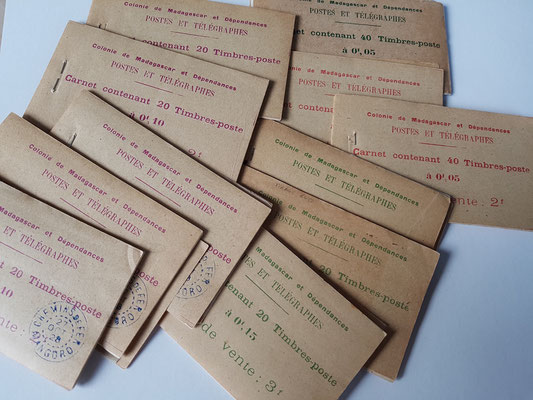 Colonie de Madagascar et Dépendances
POSTES ET TÉLÉGRAPHES
Carnet contenant 20 Timbres-poste
Colonie de Madagascar et Dépendances
POSTES ET TÉLÉGRAPHES
Carnet contenant 40 Timbres-poste
à 0f,05
Colonie de Madagascar et Dépendances
POSTES ET TÉLÉGRAPHES
Carnet contenant 20 Timbres-poste
à 0f,10
Colonie de Madagascar et Dépendances
POSTES ET TÉLÉGRAPHES
Colonie de Madagascar et Dépendances
POSTES ET TÉLÉGRAPHES
Carnet contenant 40 Timbres-poste
à 0f,05
vente : 2f
Colonie de Madagascar et Dépendances
POSTES ET TÉLÉGRAPHES
20 Timbres-poste
Colonie de Madagascar et Dépendances
POSTES ET TÉLÉGRAPHES
Colonie de Madagascar et Dépendances
POSTES ET TÉLÉGRAPHES
20 Timbres-poste
Colonie de Madagascar et Dépendances
POSTES ET TÉLÉGRAPHES
20 Timbres-poste
de Madagascar et Dépendances
ET TÉLÉGRAPHES
20 Timbres-poste
10
CHEMINS DE FER
Colonie de Madagascar et Dépendances
POSTES ET TÉLÉGRAPHES
20 Timbres-poste
à 0f,15
de vente : 3f